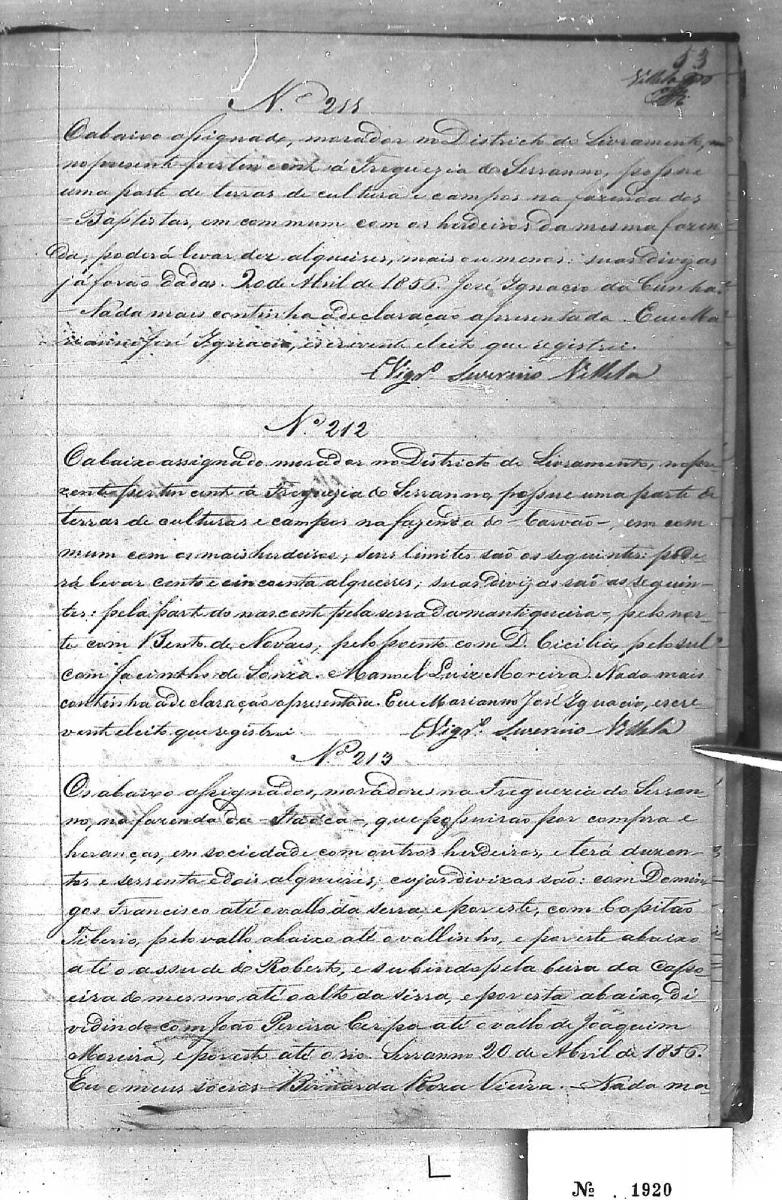 53
Villela
N.º 211
O abaixo assignado, morador no Districto do Livramento,
no presente pertencente á Freguezia do Serranno, possue
uma parte de terras de cultura e campos na fazenda dos
=Baptistas, em commum com os herdeiros da mesma fazen-
da; poderá levar dez alqueires, mais ou menos: suas divizas
já forão dadas. 20 de Abril de 1856. José Ignacio da Cunha.
- Nada mais continha a declaração apresentada. Eu e Ma-
rianno José Ignacio, escrevente eleito que registrei.
O Vigr.º Severino Villela
Nº 212
O abaixo assignado morador no Districto do Livramento, no pre-
zente pertencente á Freguezia do Serranno, possue uma parte de
terras de culturas e campos na fazenda do -Carvão-, em com-
mum com os mais herdeiros; seus limites são os seguintes: pode-
rá levar cento e cincoenta alqueires; suas divizas são as seguin-
tes: pela parte do nascente pela serra da mantiqueira-, pelo nor-
te com Bento de Novais, pelo poente com D. Cicilia, pelo sul
com Jacintho de Souza. Manoel Luiz Moreira. Nada mais
continha a declaração apresentada. Eu e Marianno José Ignacio, escre-
vente eleito que registrei. O Vigr.º Severino Villela
Nº 213
Os abaixo assignados, moradores na Freguezia do Serran-
no, na fazenda da -Itaóca-, que possuirão por compra e
heranças, em sociedade com outros herdeiros, e terá duzen-
tos e sessenta e dois alqueires; cujas divizas são: com Domin-
gos Francisco até o vallo da serra e por este, com Capitão
Tiberio, pelo vallo abaixo até o vallinho, e por este abaixo
até o assude do Roberto, e subindo pela beira da capo-
eira do mesmo até o alto da serra, e por esta abaixo, di-
vidindo com João Pereira Cerpa até o vallo de Joaquim
Moreira, e por este até o rio. Serranno 20 de Abril de 1856.
Eu e meus socios - Bernarda Roza Vieira. - Nada ma-
Nº 1920